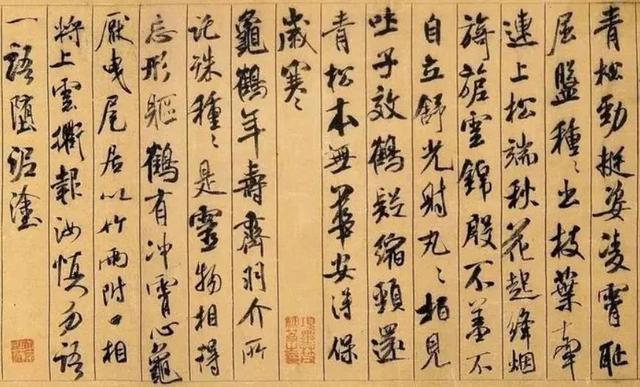 青松勁挺姿凌霄恥
屈盤種〻出枝葉牽
連上松端秋花起絳烟
旖旎雲錦殷不羞不
自立舒光射丸〻柏見
吐子效鶴疑縮頸還
青松本無華安得保
歲寒〻
龜鶴年壽齊羽介所
託殊種〻是靈物相得
忘形軀鶴有冲霄心龜
厭曳尾居以竹兩附口相
將上雲衢報汝慎勿語
一語墮泥塗